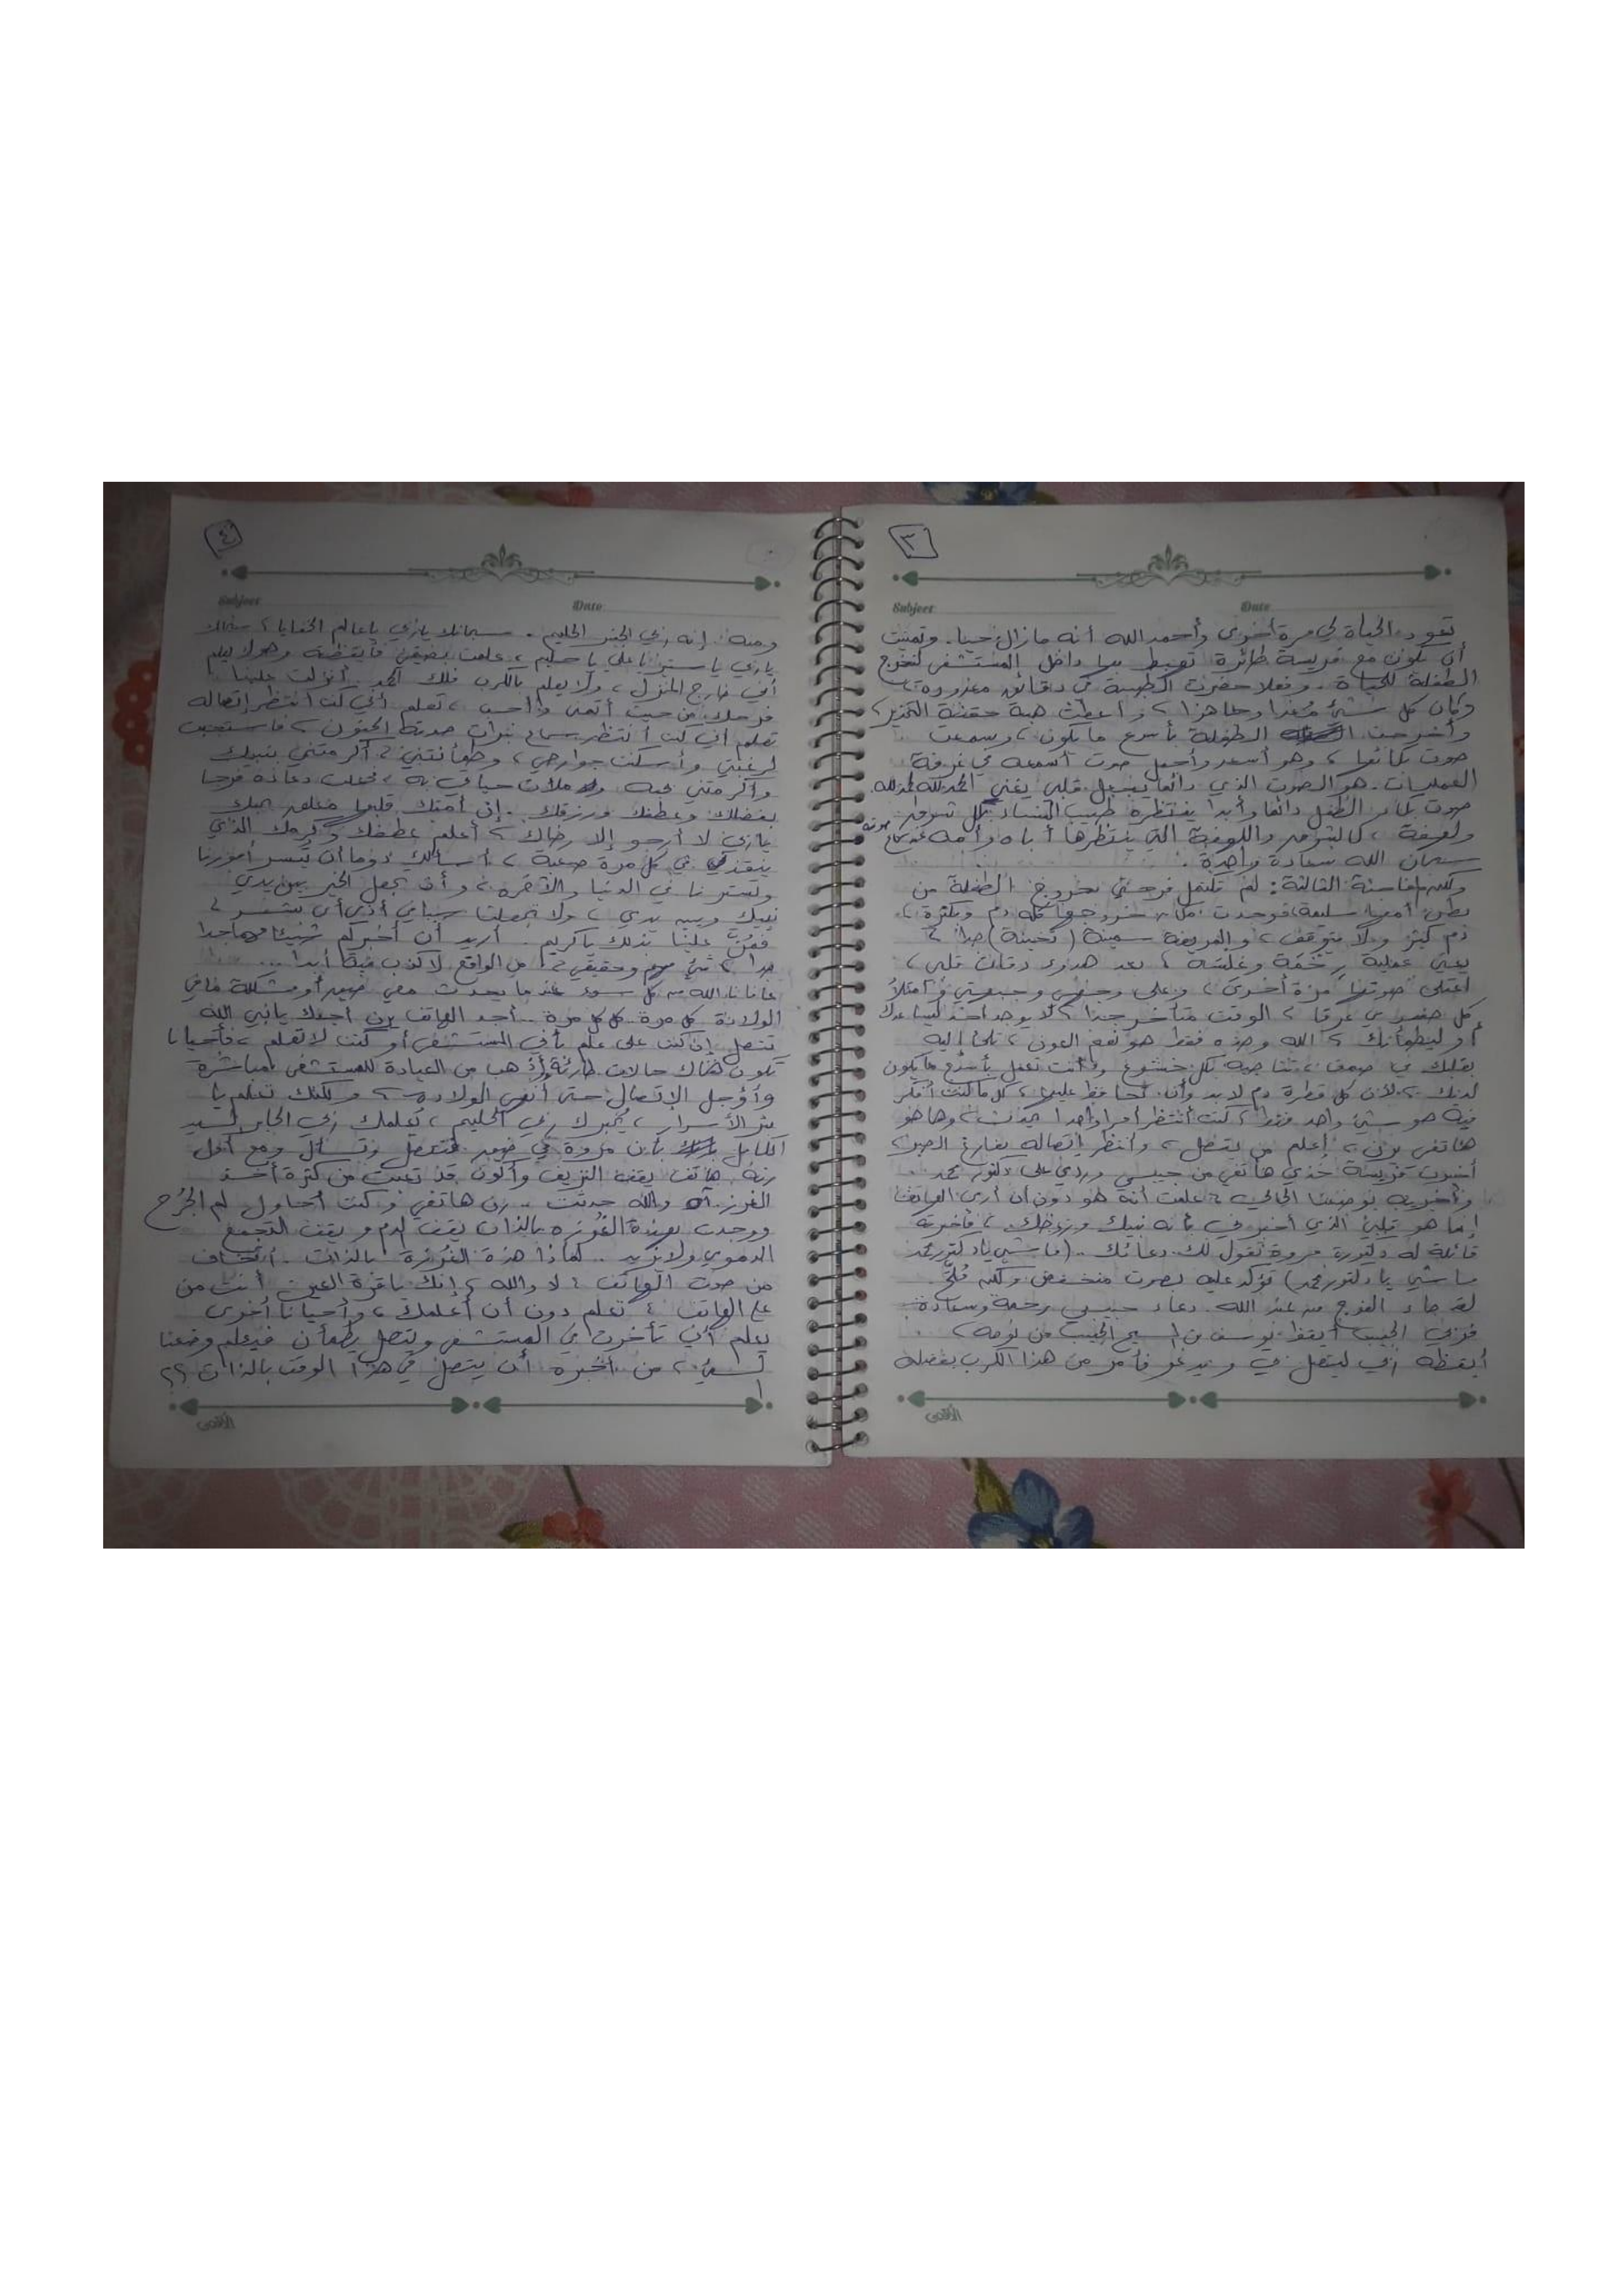 ٣
Subject Date
تعود الحياة لي مرة أخرى وأحمد الله أنه مازال حيا. وتمنيت
أن تكون مع فريسة طائرة تهبط بها داخل المستشفى لتخرج
الطفلة للحياة. وفعلا حضرت الطبيبة في دقائق معزورة
وكان كل شئ مُعدا وجاهزا، وأعطت هبة حقنة التخدير،
وأخرجت الطفلة بأسرع ما يكون، وسمعت
صوت بكائها، وهو أسعد وأجمل صوت أسمعه في غرفة
العمليات. هو الصوت الذي دائما يجعل قلبي يغني الحمدلله الحمدلله.
صوت بكاء الطفل دائما وأبدا ينتظره طبيب النساء بكل شوق
ولهفة، كالشوق واللهفة التي ينتظرها أباه وأمه
سبحان الله سعادة واحدة.
ولكن المفاسنة الثالثة: لم تكتمل فرحتي بخروج الطفلة من
بطن أمها سليمة، فوجدت مكان خروجها كله دم وبكثرة،
دم كثير ولا يتوقف، والمريضة سمينة (تخينة) جدا،
يعني عملية رخمة وغلسة، بعد هدوء دقات قلبي،
اعتلى صوتها مرة أخرى، وعلى وجهي وجبهتي وامتلأ
كل جسدي عرقا، الوقت متأخر جدا، لا يوجد أحد ليساعدك
أو ليطمأنك، الله وحده فقط هو نعم العون، تلجأ إليه
بقلبك في صمت، تناجيه بكل خشوع وأنت تعمل بأسرع ما يكون
لديك، لأن كل قطرة دم لابد وأن تحافظ عليها، كل ما كنت أفكر
فيه هو شئ واحد فقط، كنت أنتظر أمرا واحدا يحدث، وها هو
هاتفي يرن، أعلم من يتصل، وأنتظر إتصاله بفارغ الصبر،
أشرت لممرضة خذي هاتفي من جيبي وردي على دكتور محمد
وأخبريه بوضعنا الحالي، علمت أنه هو دون أن أرى الهاتف،
إنما هو قلبي الذي أخبرني بأنه نبيك ورزقك، فأخبرته
قائلة له دكتورة مروة تقول لك دعائك.. (ماشي يا دكتور محمد
ماشي يا دكتور محمد) تؤكد عليه بصوت منخفض ولكنه مُلحّ.
لقد جاء الفرج من عند الله. دعاء حبيبي رحمة وسعادة
فربي الحبيب أيقظ يوسف بن المسيح الحبيب من نومه،
أيقظه ربي ليتصل بي ويدعو فأمر من هذا الكرب بفضله
الأقصى
٤
Subject Date
ومنه. إنه ربي الخبير الحليم. سبحانك يا ربي يا عالم الخفايا، سبحانك
يا ربي يا ستير يا علي يا حليم، علمت بضيقي فأيقظته وهو لا يعلم
أني خارج المنزل، ولا يعلم بالكرب فلك الحمد. أنزلت علينا
فرحك من حيث أتمنى وأحب، تعلم أني كنت أنتظر إتصاله
تعلم أني كنت أنتظر سماع نبرات صوته الحنون، فاستجبت
لرغبتي وأسكنت جوارحي، وطمأنتني، أكرمتني بنبيك
وأكرمتني بحبه وملأت حياتي به، فجعلت دعائه فرجا
بفضلك وعطفك ورزقك. إني أمتك قلبها معلق بحبك
يا ربي لا أرجو إلا رضاك، أعلم عطفك وكرمك الذي
ينقذني في كل مرة صعبة، أسألك دوما أن تيسر أمورنا
وتسترنا في الدنيا والآخرة، وأن تجعل الخير بين يدي
نبيك وبين يدي، ولا تجعلنا سببا في أذى أي بشر،
فمُنّ علينا بذلك يا كريم. أريد أن أخبركم شيئا مهما جدا
جدا، شئ مهم وحقيقي، من الواقع لا كذب فيه أبدا...
عافانا الله من كل سوء عندما يحدث معي صعب أو مشكلة ما في
الولادة كل مرة كل كل مرة.. أجد الهاتف يرن أجدك يا نبي الله
تتصل إن كنت على علم بأني المستشفى أو كنت لا تعلم، فأحيانا
تكون هناك حالات طارئة وأذهب من العيادة للمستشفى مباشرة
وأؤجل الإتصال حتى أنهي الولادة، ولكنك تعلم يا
بئر الأسرار، يُخبرك ربي الحليم، يُعلمك ربي الجابر السيد
الكامل بأن مروة في صعب فتتصل وتسأل ومع أول
رنة هاتف يقف النزيف وأكون قد تعبت من كثرة أخذ
الغرز. آه والله حدثت.. رن هاتفي وكنت أحاول لم الجُرح
ووجدت بهذه الغُرزه بالذات يقف الدم ويقف التجمع
الدموي ولا يزيد.. لماذا هذه الغُرزة بالذات. أتخاف
من صوت الهاتف؟ لا والله، إنك يا قرة العين أنت من
على الهاتف، تعلم دون أن أعلمك، وأحيانا أخرى
يعلم أني تأخرت في المستشفى ويتصل يطمأن فيعلم وضعنا
السئ، من أخبره أن يتصل في هذا الوقت بالذات؟؟
الأقصى